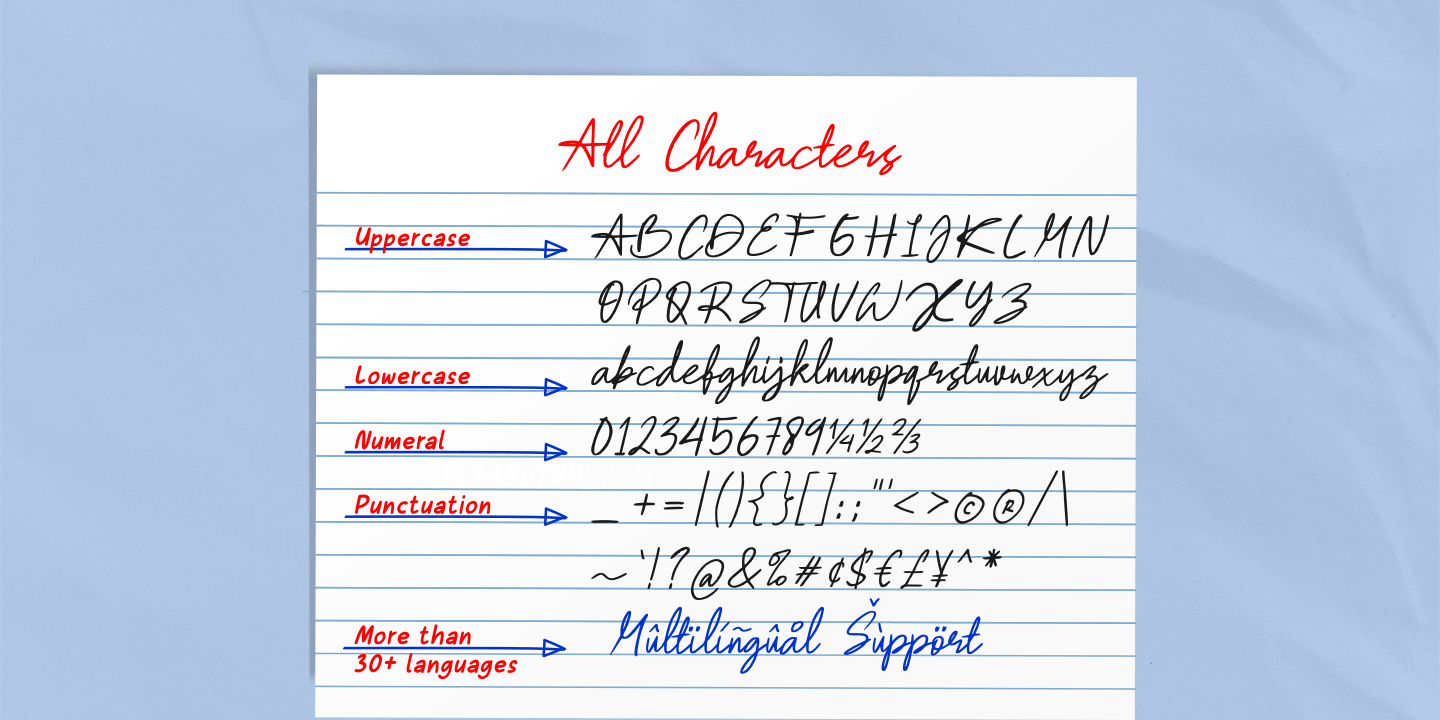 All Characters
Uppercase
ABCDEFGHIJKLMN
OPQRSTUVWXYZ
Lowercase
abcdefghijklmnopqrstuvwxyz
Numeral
0123456789¼½⅔
Punctuation
_ + = | ( ) { } [ ] : ; " ' < > © ® / \
~ ` ! ? @ & % # ¢ $ € £ ¥ ^ *
More than
30+ languages
Mûltïlíñgûål Šùppört